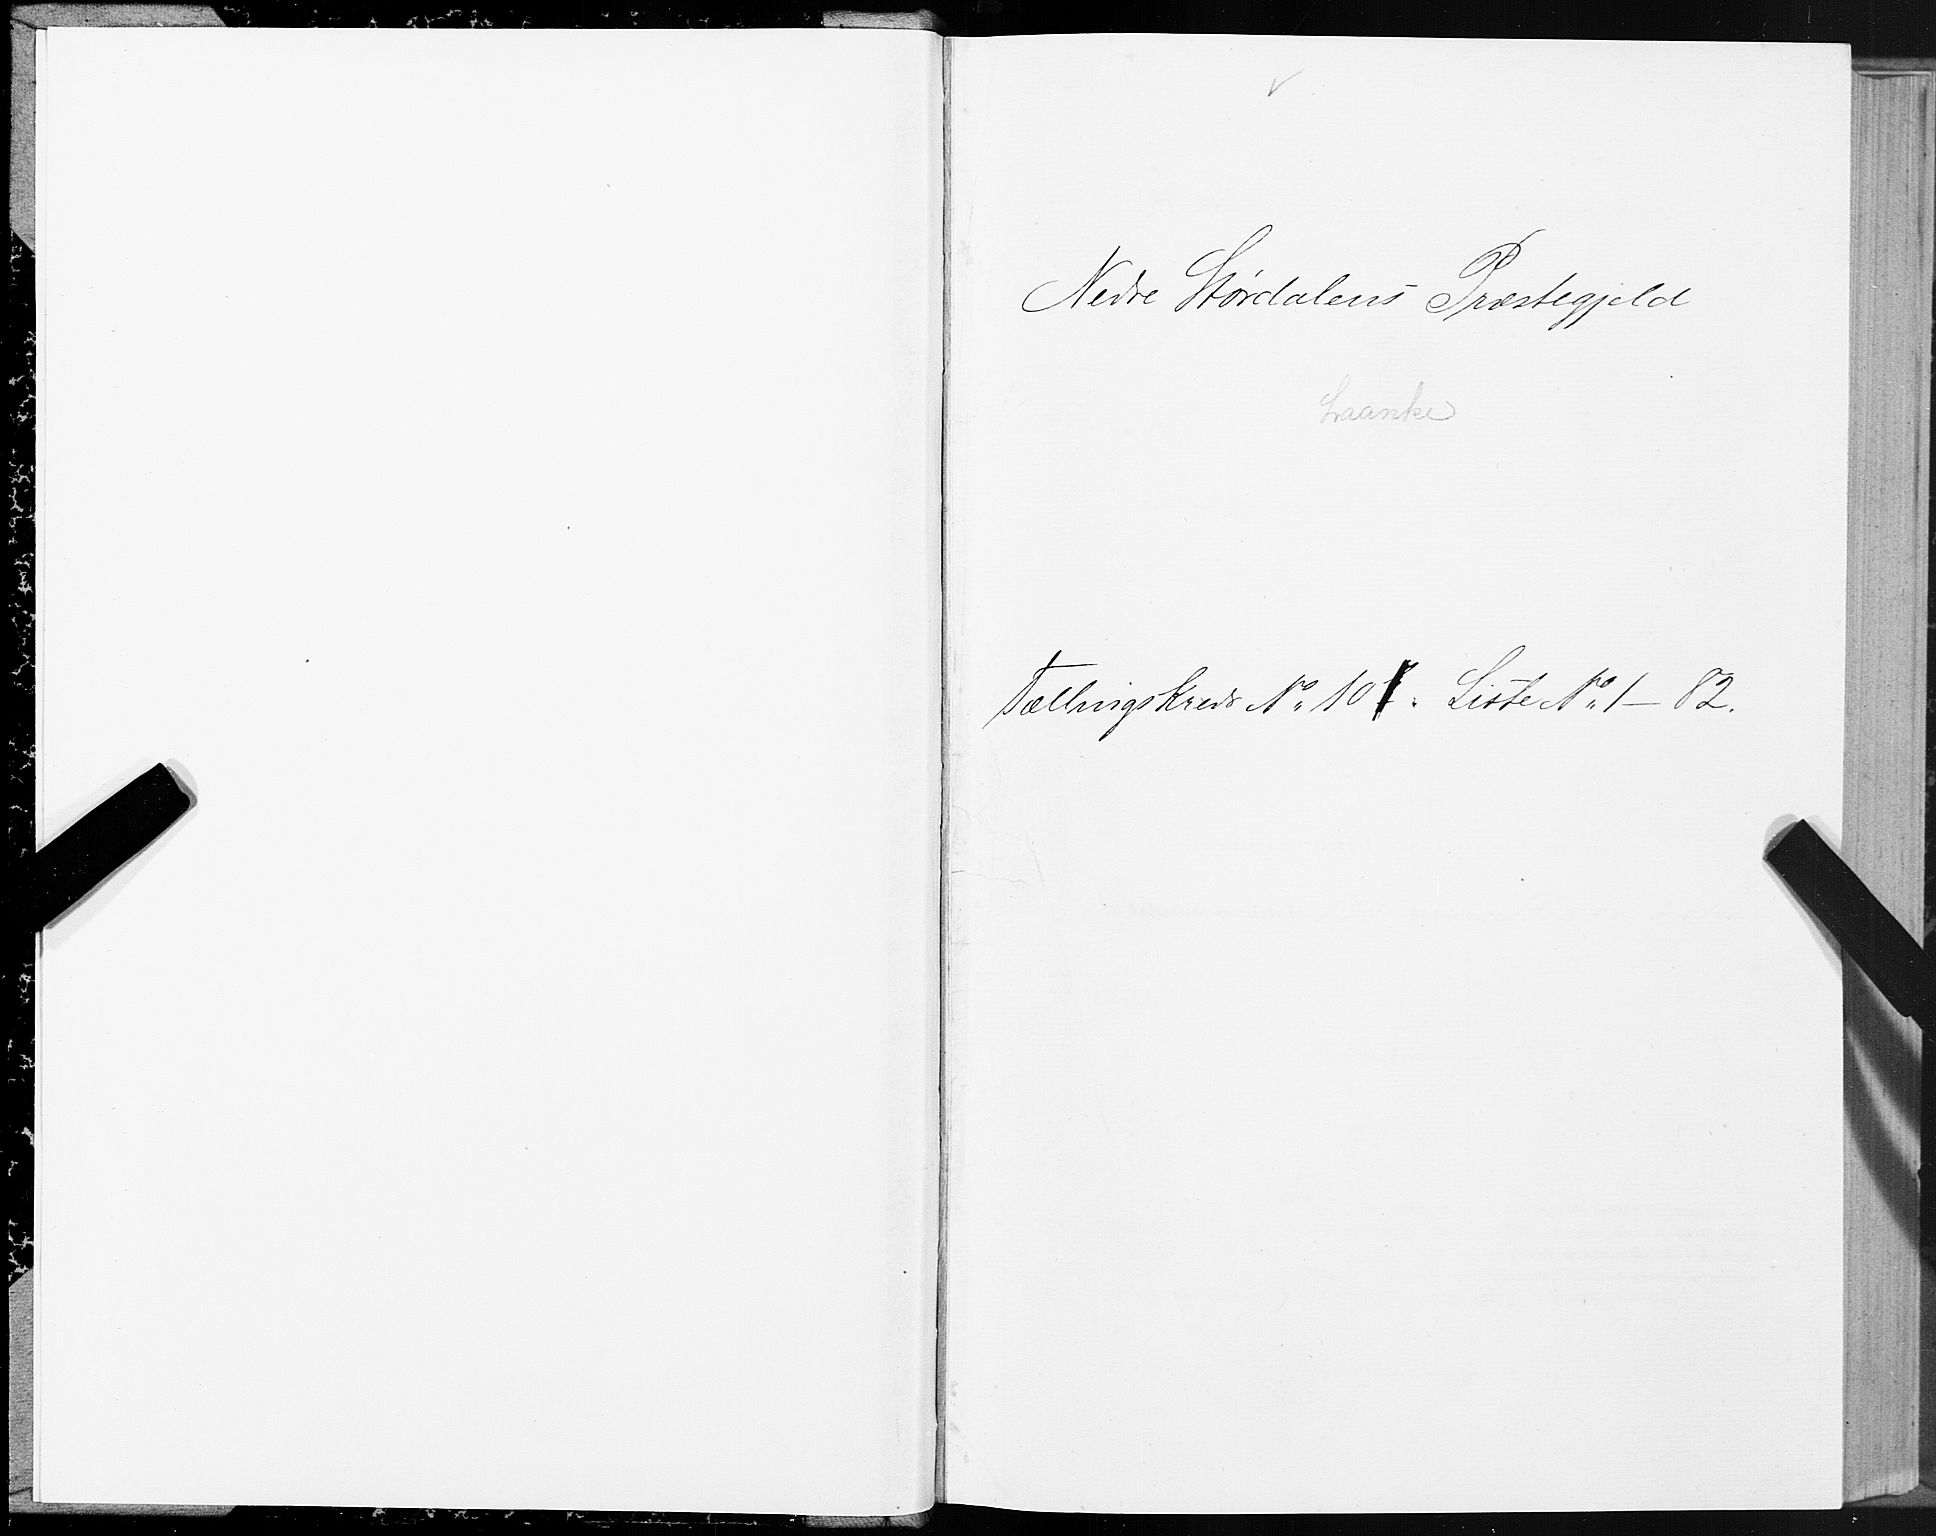 Nedre Størdalens Præstegjeld
Laanke
Tællingskreds No. 10. Liste No. 1 – 82.